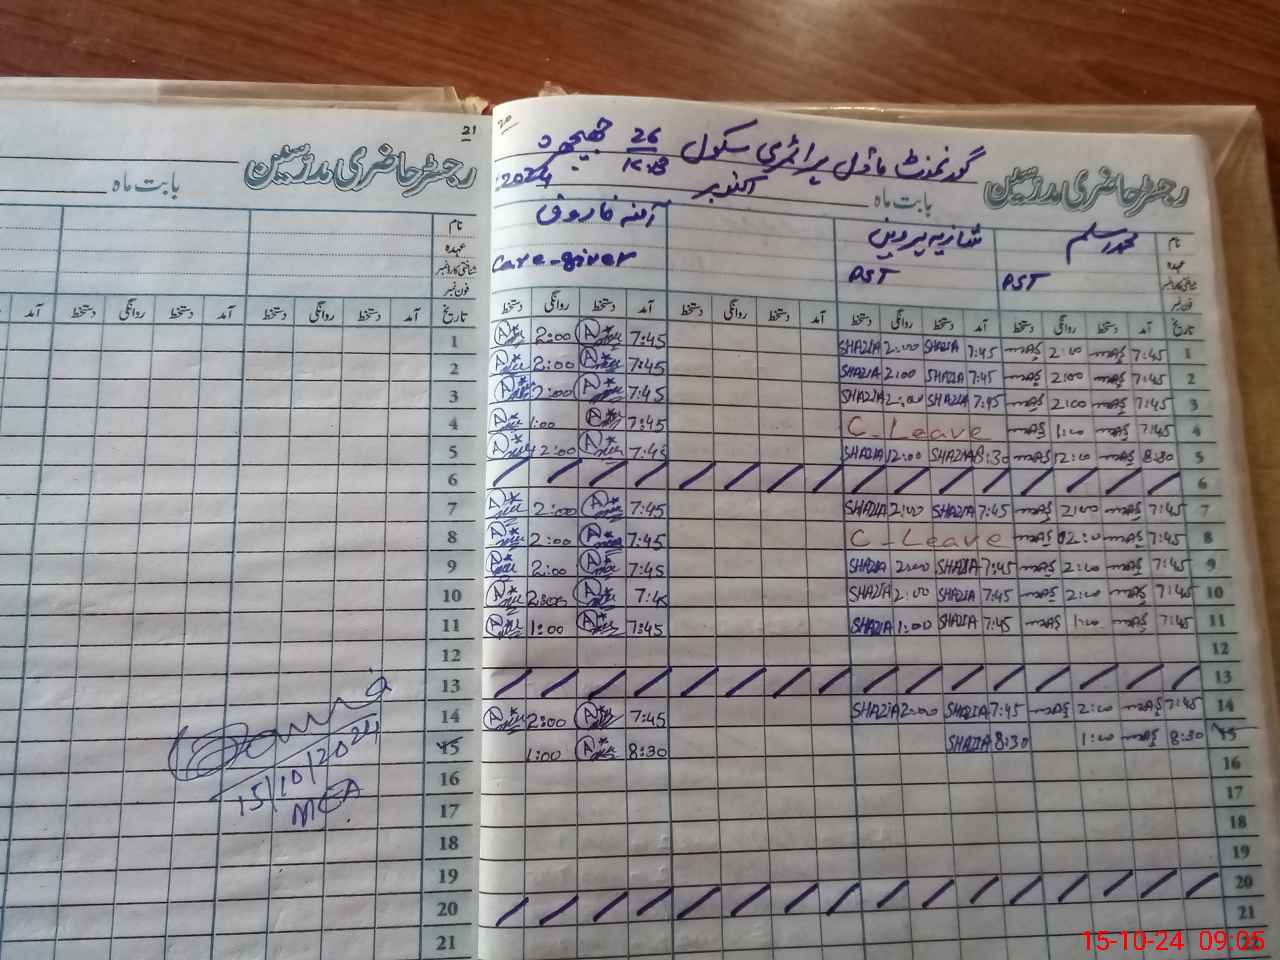 20
گورنمنٹ ماڈل پرائمری سکول 26
رجسٹر حاضری مدرسین
بابت ماہ اکتوبر 2024
نام محمد اسلم شازیہ پروین آمنہ فاروق
عہدہ PST PST Care-giver
شناختی کارڈ نمبر
فون نمبر
تاریخ آمد دستخط روانگی دستخط آمد دستخط روانگی دستخط آمد دستخط روانگی دستخط آمد دستخط روانگی دستخط
2:00 7:45 SHAZIA 2:00 SHAZIA 7:45 2:00 7:45 1
2:00 7:45 SHAZIA 2:00 SHAZIA 7:45 2:00 7:45 2
2:00 7:45 SHAZIA 2:00 SHAZIA 7:45 2:00 7:45 3
1:00 7:45 C-Leave 1:00 7:45 4
12:00 7:45 SHAZIA 12:00 SHAZIA 8:30 12:00 8:30 5
6
2:00 7:45 SHAZIA 2:00 SHAZIA 7:45 2:00 7:45 7
2:00 7:45 C-Leave 02:00 7:45 8
2:00 7:45 SHAZIA 2:00 SHAZIA 7:45 2:00 7:45 9
2:00 7:45 SHAZIA 2:00 SHAZIA 7:45 2:00 7:45 10
1:00 7:45 SHAZIA 1:00 SHAZIA 7:45 1:00 7:45 11
12
13
2:00 7:45 SHAZIA 2:00 SHAZIA 7:45 2:00 7:45 14
1:00 8:30 SHAZIA 8:30 1:00 8:30 15
16
17
18
19
20
21
21
رجسٹر حاضری مدرسین
بابت ماہ
نام
عہدہ
شناختی کارڈ نمبر
فون نمبر
تاریخ آمد دستخط روانگی دستخط آمد دستخط روانگی دستخط آمد
1
2
3
4
5
6
7
8
9
10
11
12
13
14
15
16
17
18
19
20
21
15/10/2024
MEA
15-10-24 09:05